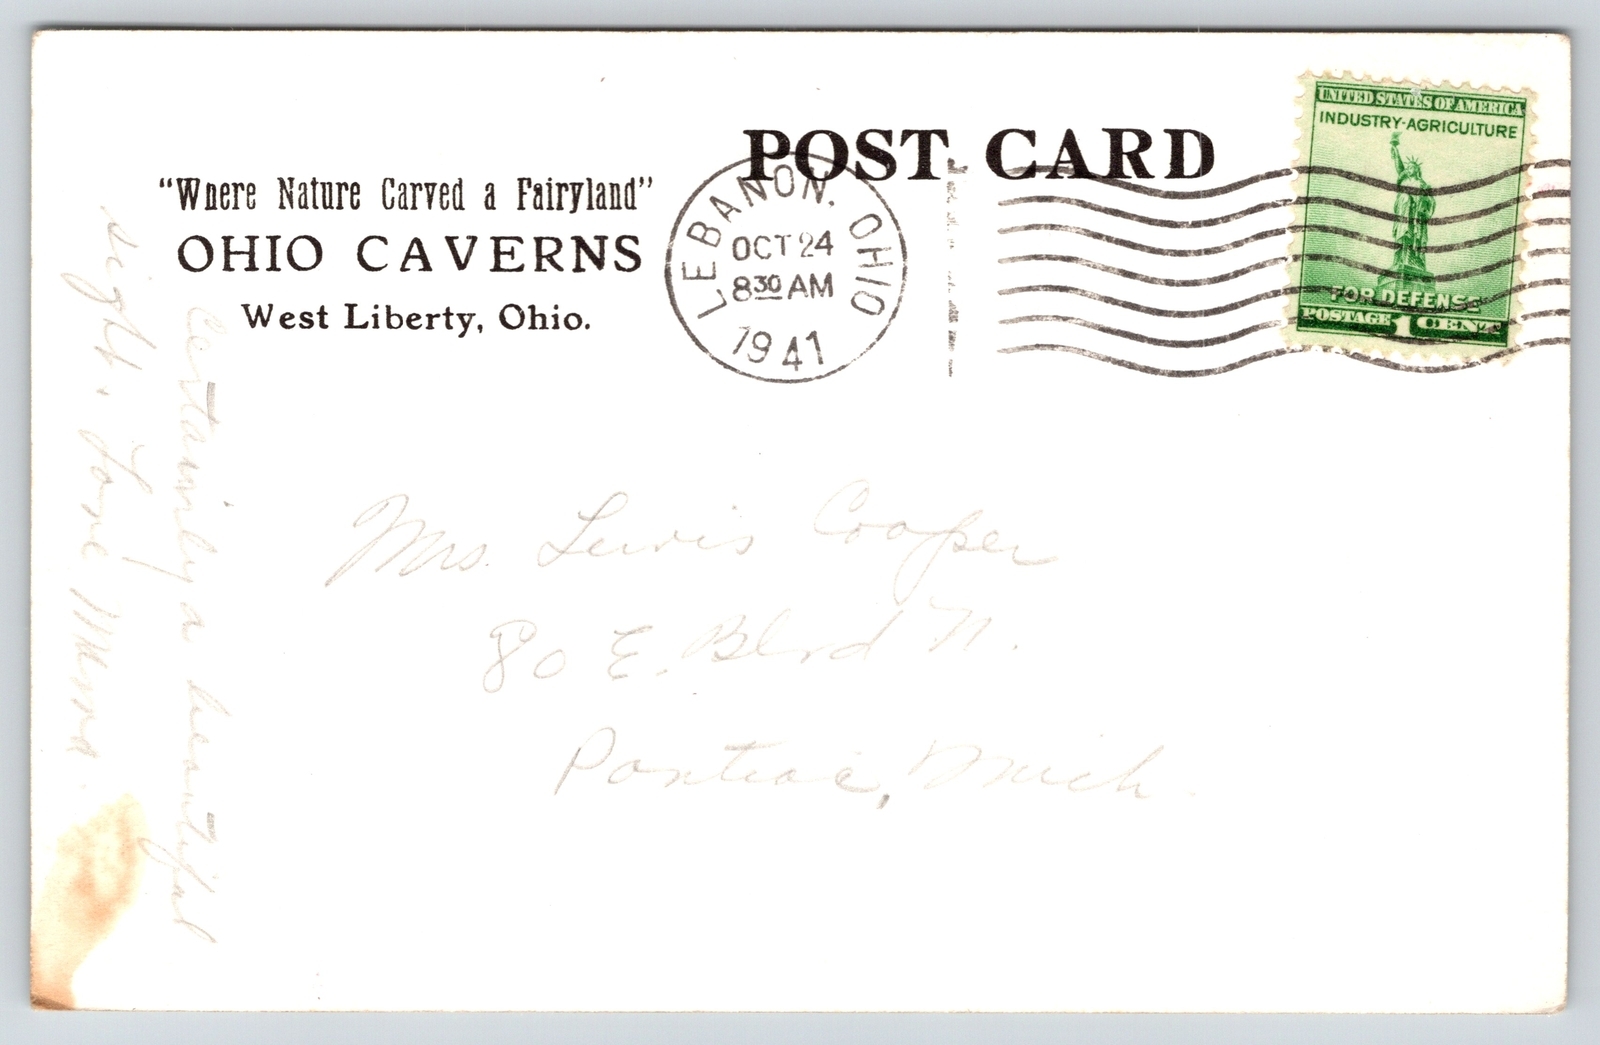 POST CARD
"Where Nature Carved a Fairyland"
OHIO CAVERNS
West Liberty, Ohio.
LEBANON, OHIO
OCT 24
8 30 AM
1941
UNITED STATES OF AMERICA
INDUSTRY-AGRICULTURE
FOR DEFENSE
POSTAGE 1 CENT
Certainly a beautiful
sight. Love
Mrs. Lewis Cooper
80 E. Blvd N.
Pontiac, Mich.